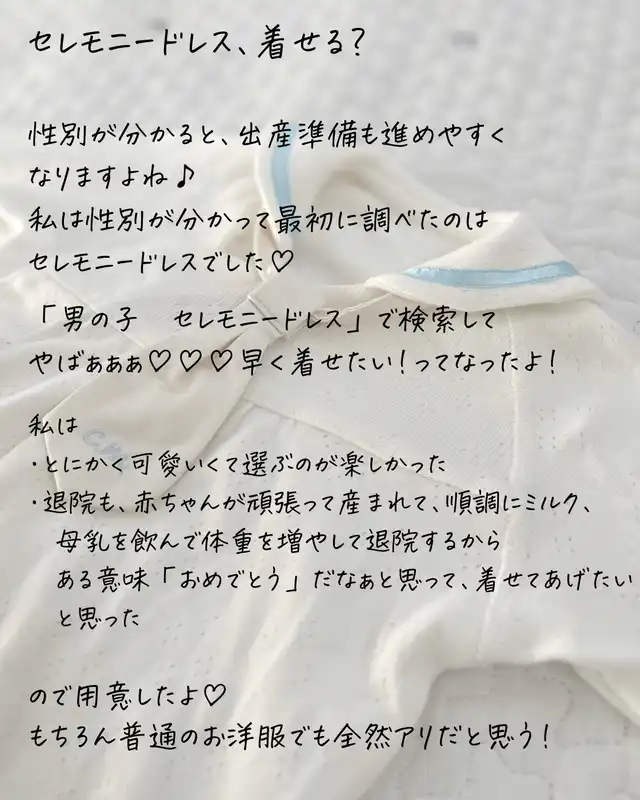 セレモニードレス、着せる?
性別が分かると、出産準備も進めやすく
なりますよね♪
私は性別が分かって最初に調べたのは
セレモニードレスでした♡
「男の子　セレモニードレス」で検索して
やばぁぁぁ♡♡♡早く着せたい！ってなったよ！
私は
・とにかく可愛いくて選ぶのが楽しかった
・退院も、赤ちゃんが頑張って産まれて、順調にミルク、
母乳を飲んで体重を増やして退院するから
ある意味「おめでとう」だなぁと思って、着せてあげたい
と思った
ので用意したよ♡
もちろん普通のお洋服でも全然アリだと思う！